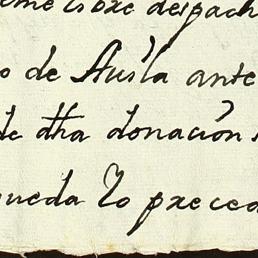 libre despach
o de Auila ante
de dha donación
queda Lo preced